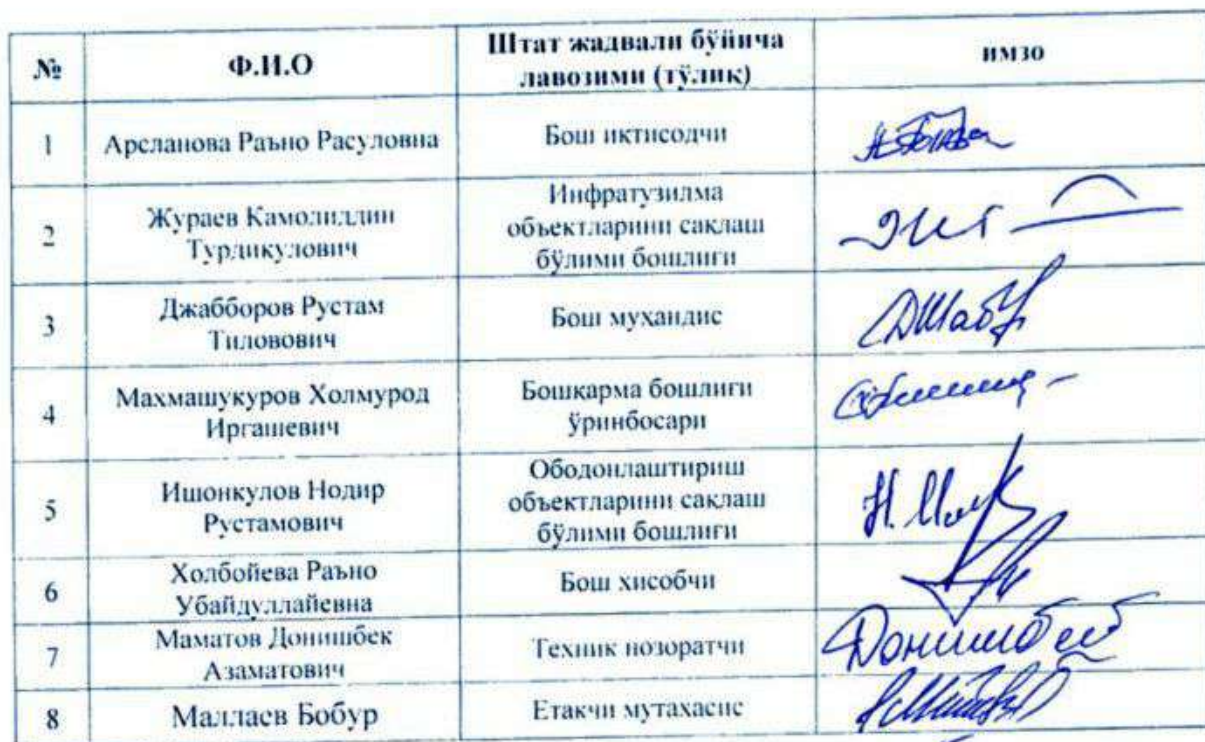 №
Ф.И.О
Штат жадвали бўйича
лавозими (тўлиқ)
имзо
1
Арсланова Раъно Расуловна
Бош иқтисодчи
2
Жураев Камолиддин
Турдикулович
Инфратузилма
объектларини сақлаш
бўлими бошлиғи
3
Джабборов Рустам
Тиловович
Бош мухандис
4
Махмашукуров Холмурод
Иргашевич
Бошқарма бошлиғи
ўринбосари
5
Ишонкулов Нодир
Рустамович
Ободонлаштириш
объектларини сақлаш
бўлими бошлиғи
6
Холбойева Раъно
Убайдуллайевна
Бош хисобчи
7
Маматов Донишбек
Азаматович
Техник нозоратчи
Донишбек
8
Маллаев Бобур
Етакчи мутахасис